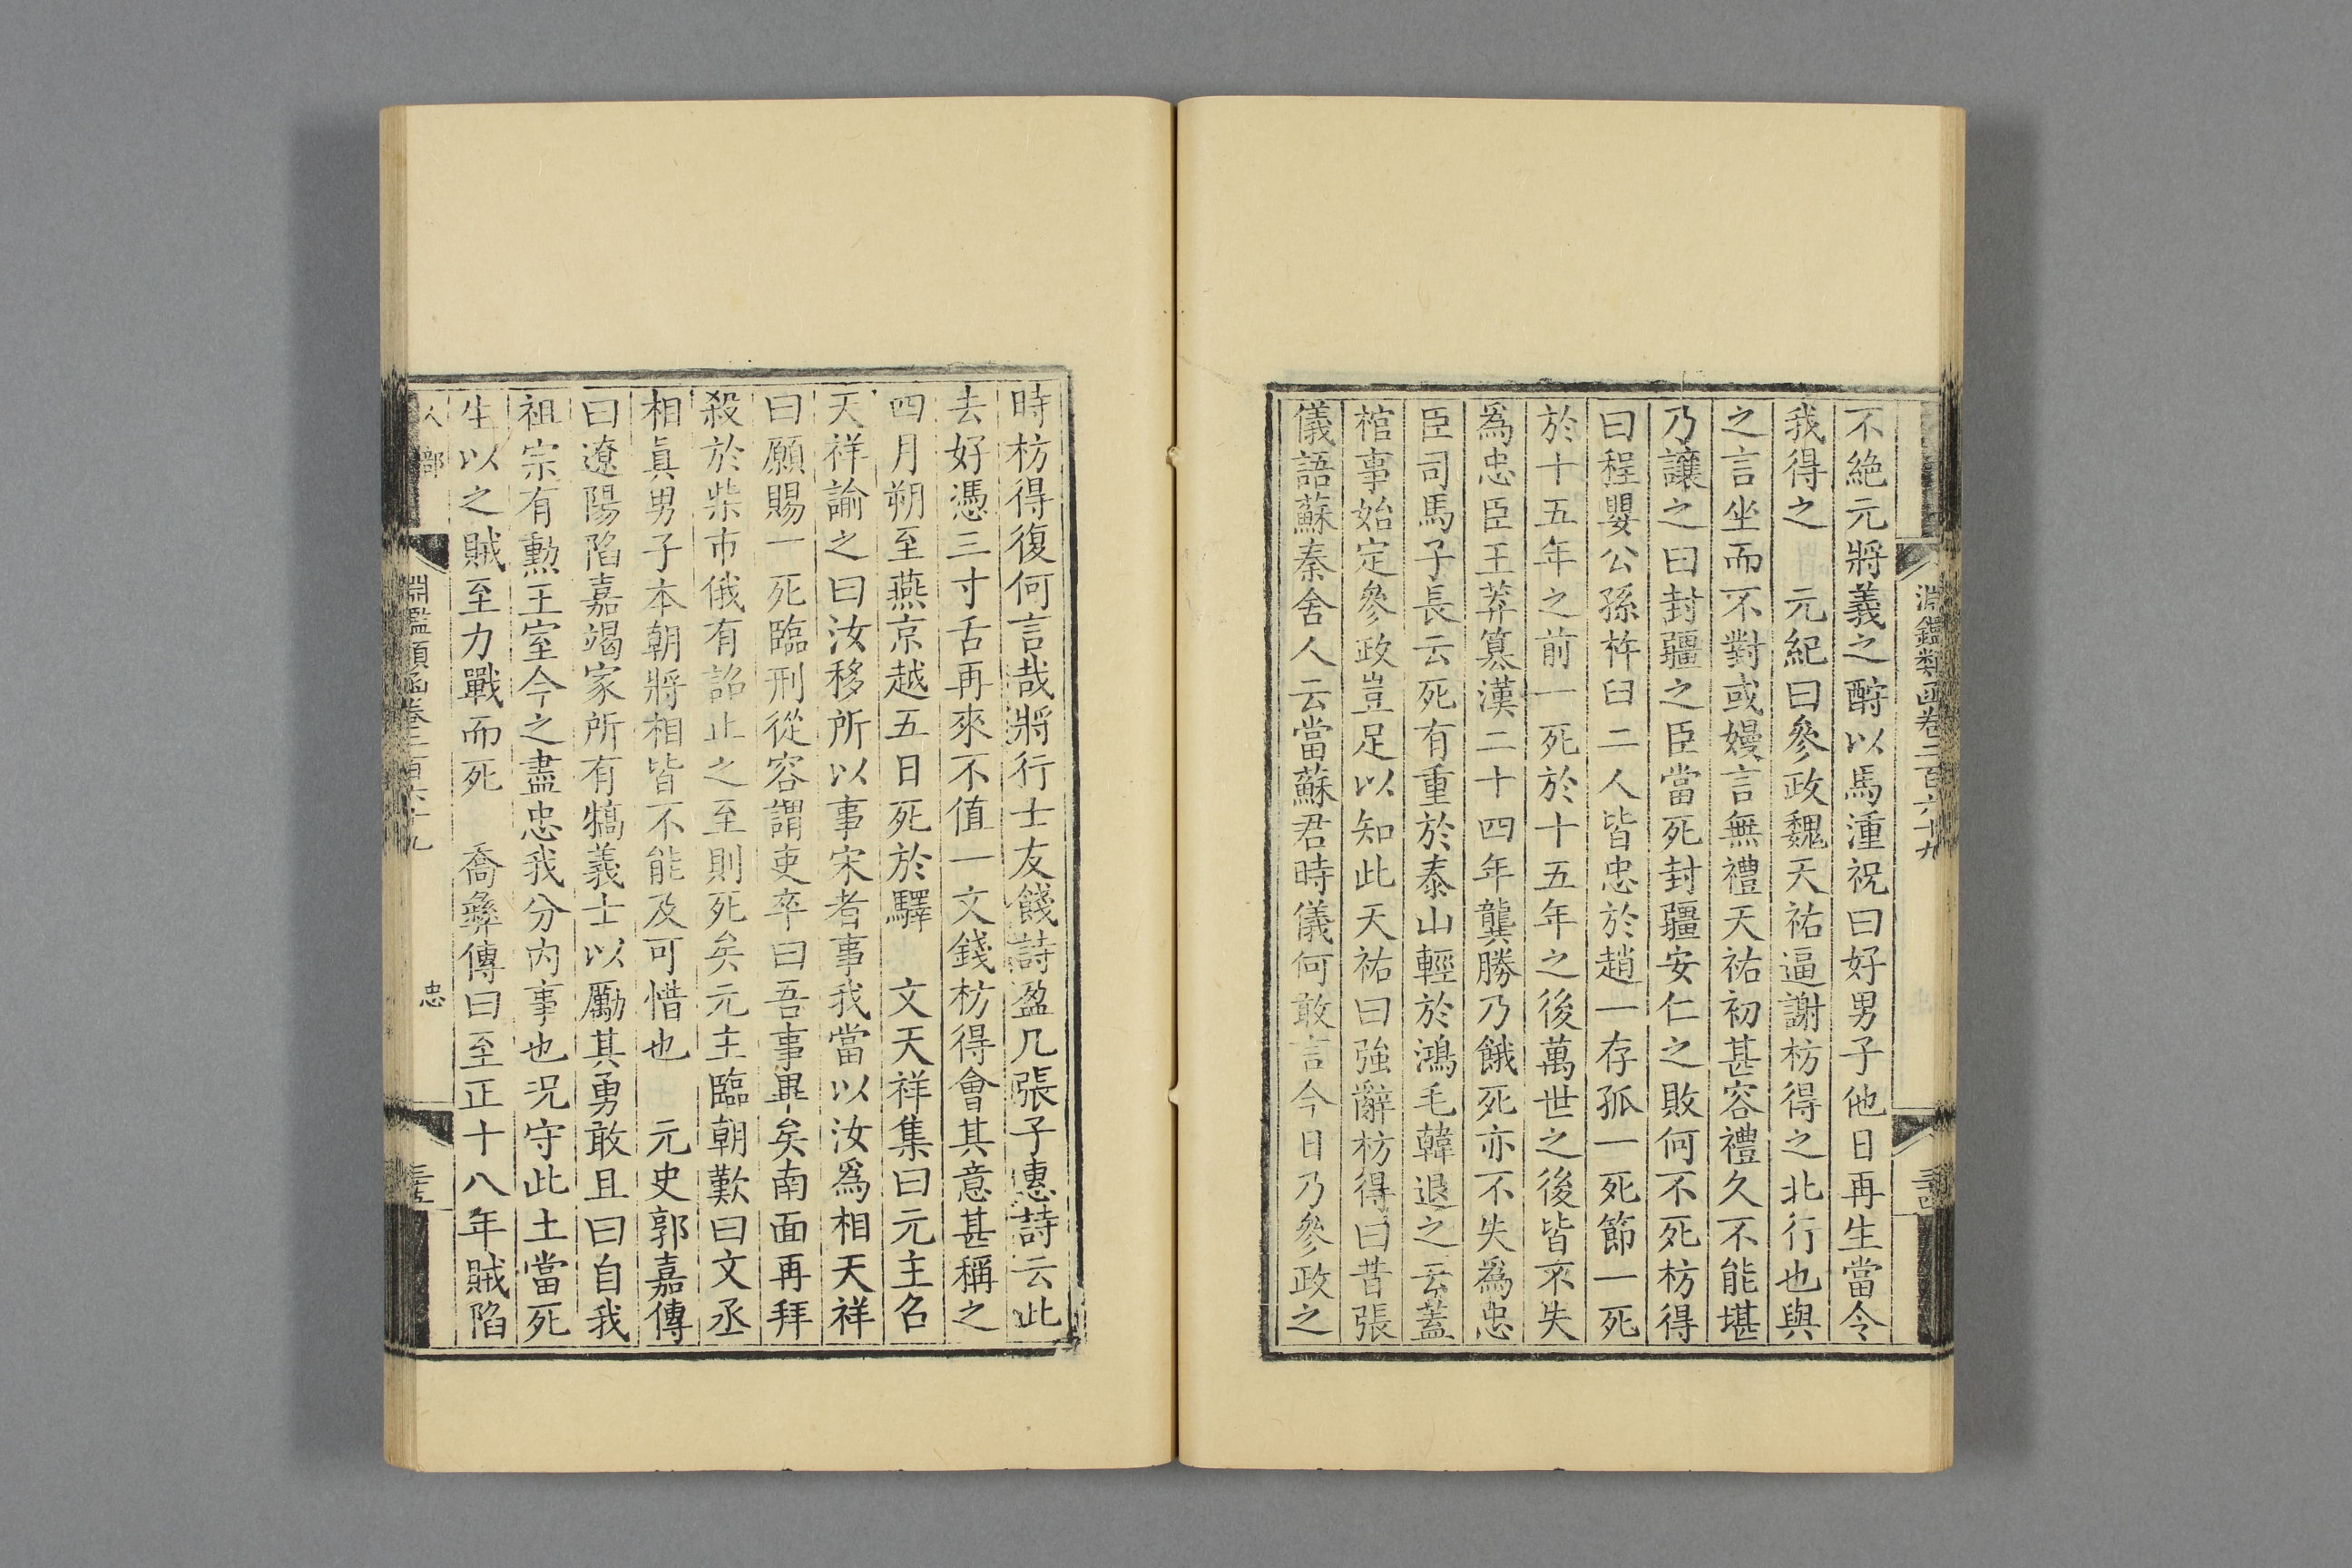 淵鑑類函卷二百六十九
三四
不絶元將義之酹以馬湩祝曰好男子他日再生當令
我得之　元紀曰參政魏天祐逼謝枋得之北行也與
之言坐而不對或嫚言無禮天祐初甚容禮久不能堪
乃讓之曰封疆之臣當死封疆安仁之敗何不死枋得
曰程嬰公孫杵臼二人皆忠於趙一存孤一死節一死
於十五年之前一死於十五年之後萬世之後皆不失
爲忠臣王莽簒漢二十四年龔勝乃餓死亦不失爲忠
臣司馬子長云死有重於泰山輕於鴻毛韓退之云蓋
棺事始定參政豈足以知此天祐曰強辭枋得曰昔張
儀語蘇秦舍人云當蘇君時儀何敢言今日乃參政之
時枋得復何言哉將行士友餞詩盈几張子惠詩云此
去好憑三寸舌再來不值一文錢枋得會其意甚稱之
四月朔至燕京越五日死於驛　文天祥集曰元主召
天祥諭之曰汝移所以事宋者事我當以汝爲相天祥
曰願賜一死臨刑從容謂吏卒曰吾事畢矣南面再拜
殺於柴市俄有詔止之至則死矣元主臨朝歎曰文丞
相眞男子本朝將相皆不能及可惜也　元史郭嘉傳
曰遼陽陷嘉竭家所有犒義士以勵其勇敢且曰自我
祖宗有勲王室今之盡忠我分内事也况守此土當死
生以之賊至力戰而死　喬彝傳曰至正十八年賊陷
人部
淵鑑類函卷二百六十九
忠
三五